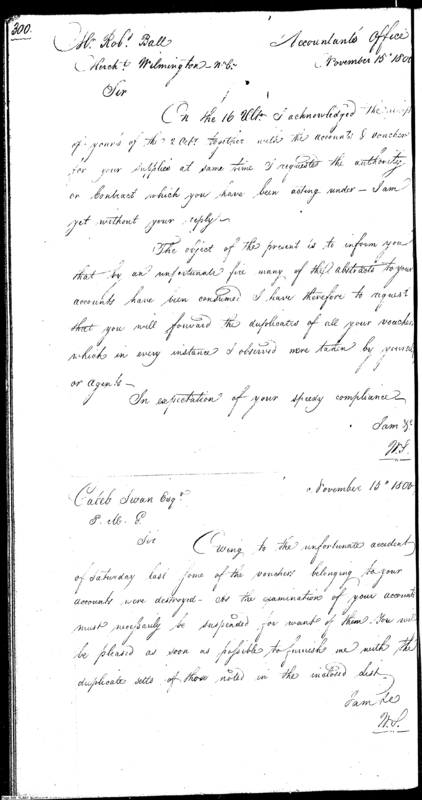 300.
Mr. Robt. Ball
Accountants Office
Mercht. Wilmington N.C.
November 15th 1800
Sir
On the 16 Ulto. I acknowledged the receipt
of yours of the 2 Octr. together with the accounts & vouchers
for your supplies at same time I requested the authority
or Contract which you have been acting under — I am
yet without your reply —
The object of the present is to inform you
that by an unfortunate fire many of the abstracts to your
accounts have been consumed I have therefore to request
that you will forward the duplicates of all your vouchers
which in every instance I observed were taken by yourself
or agents —
In expectation of your speedy compliance
I am &c
W.S.
November 15th 1800
Caleb Swan Esqr.
P. M. G.
Sir
Owing to the unfortunate accident
of Saturday last some of the vouchers belonging to your
accounts were destroyed — As the examination of your accounts
must necessarily be suspended for want of them You will
be pleased as soon as possible to furnish me with the
duplicate setts of those noted in the inclosed list
I am &c
W.S.